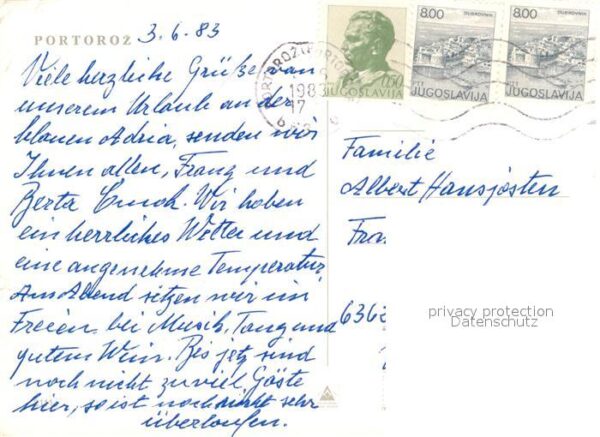 PORTOROŽ 3.6.83
Viele herzliche Grüße von
unserem Urlaub an der
blauen Adria, senden wir
Ihnen allen, Franz und
Berta. Wir haben
ein herrliches Wetter und
eine angenehme Temperatur.
Am Abend sitzen wir im
Freien, bei Musik, Tanz und
gutem Wein. Bis jetz sind
noch nicht zu viel Gäste
hier, so ist noch nicht sehr
überlaufen.
0.50
JUGOSLAVIJA
8.00 DUBROVNIK
JUGOSLAVIJA
8.00 DUBROVNIK
JUGOSLAVIJA
PORTOROŽ
198
17
6
Familie
Albert Hansjosten
Fran
636
privacy protection
Datenschutz